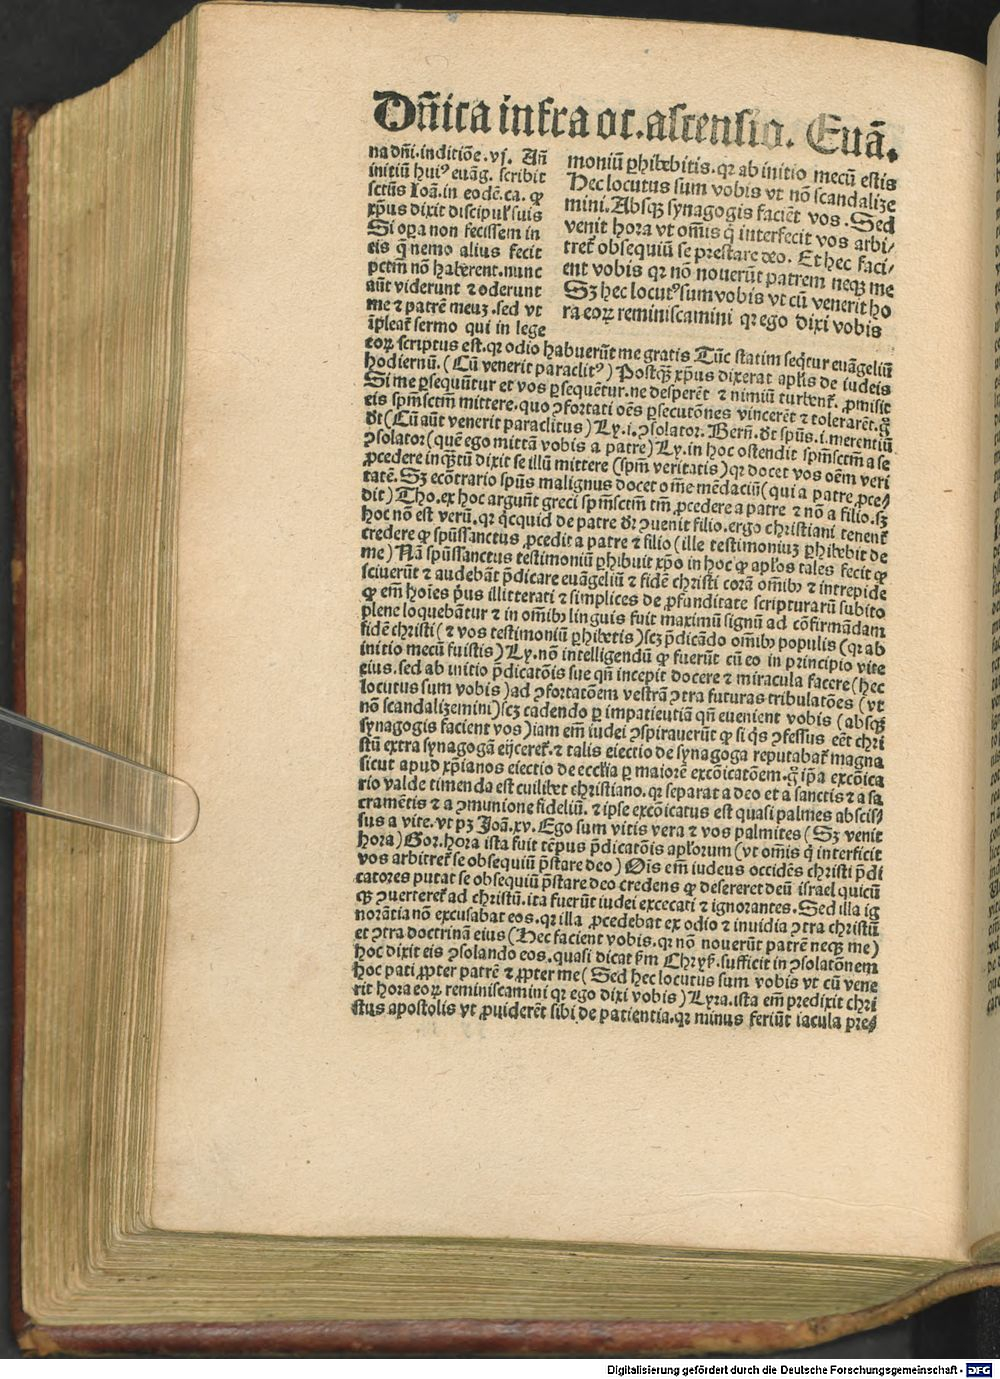 Dñica infra oc. ascensio. Euā.
na dñi. inditiōe. vj. Añ
initiū huiꝰ euāg. scribit
sctūs Ioā. in eodē. ca. ꝙ
xp̄us dixit discipul' suis
Si oꝑa non fecissem in
eis q̄ nemo alius fecit
pctm̄ nō haberent. nunc
aūt viderunt ⁊ oderunt
me ⁊ patrē meuꝫ. sed vt
īpleat̄ sermo qui in lege
moniū ꝑhibebitis. qꝛ ab initio mecū estis
Hec locutus sum vobis vt nō scandalize
mini. Absqꝫ synagogis faciēt vos. Sed
venit hora vt om̄is q̄ interfecit vos arbi⸗
tret̄ obsequiū se prestare deo. Et hec faci⸗
ent vobis qꝛ nō nouerūt patrem neqꝫ me
Sꝫ hec locutꝰ sum vobis vt cū venerit ho
ra eoꝝ reminiscamini qꝛ ego dixi vobis
eoꝝ scriptus est. qꝛ odio habuerūt me gratis Tūc statim seq̄tur euāgeliū
hodiernū. (Cū venerit paraclitꝰ) Postqꝫ xp̄us dixerat apl̄is de iudeis
Si me ꝑsequūtur et vos ꝑsequētur. ne desperēt ⁊ nimiū turbent̄. ꝓmisit
eis sp̄m sctm̄ mittere. quo ꝯfortati oēs ꝑsecutōnes vincerēt ⁊ tolerarēt. g̊
dt̄ (Cū aūt venerit paraclitus) Ly. i. ꝯsolator. Bern̄. dt̄ spūs. i. merentiū
ꝯsolator (quē ego mittā vobis a patre) Ly. in hoc ostendit sp̄m sctm̄ a se
ꝓcedere inqꝫtū dixit se illū mittere (sp̄m veritatis) qꝛ docet vos oēm veri
tatē. Sꝫ ecōtrario spūs malignus docet om̄e mēdaciū (qui a patre ꝓce⸗
dit) Tho. ex hoc arguūt greci sp̄m sctm̄ tm̄ ꝓcedere a patre ⁊ nō a filio. sꝫ
hoc nō est verū. qꝛ q̇cquid de patre dr̄ ꝯuenit filio. ergo christiani tenent̄
credere ꝙ spūs sanctus ꝓcedit a patre ⁊ filio (ille testimoniuꝫ ꝑhibebit de
me) Nā spūs sanctus testimoniū ꝑhibuit xp̄o in hoc ꝙ apl̄os tales fecit ꝙ
sciuerūt ⁊ audebāt p̄dicare euāgeliū ⁊ fidē christi corā om̄ibꝫ ⁊ intrepide
ꝙ em̄ hoīes p̄us illitterati ⁊ simplices de ꝓfunditate scripturarū subito
plene loquebātur ⁊ in om̄ibꝫ linguis fuit maximū signū ad cōfirmādam
fidē christi (⁊ vos testimoniū ꝑhibetis) scꝫ p̄dicādo om̄ibꝫ populis (qꝛ ab
initio mecū fuistis) Ly. nō intelligendū ꝙ fuerūt cū eo in principio vite
eius. sed ab initio p̄dicatōis sue qn̄ incepit docere ⁊ miracula facere (hec
locutus sum vobis) ad ꝯfortatōem vestrā ꝯtra futuras tribulatōes (vt
nō scandalizemini) scꝫ cadendo ꝑ impatieutiā qn̄ euenient vobis (absqꝫ
synagogis facient vos) iam em̄ iudei ꝯspirauerūt ꝙ si q̇s ꝯfessus eēt chri
stū extra synagogā eijceret̄. ⁊ talis eiectio de synagoga reputabat̄ magna
sicut apud xp̄ianos eiectio de ecclīa ꝑ maiorē excōicatōem. g̊ ip̄a excōica
tio valde timenda est cuilibet christiano. qꝛ separat a deo et a sanctis ⁊ a sa
cramētis ⁊ a ꝯmunione fideliū. ⁊ ipse excōicatus est quasi palmes abscis⸗
sus a vite. vt pꝫ Joā. xv. Ego sum vitis vera ⁊ vos palmites (Sꝫ venit
hora) Gor. hora ista fuit tēpus p̄dicatōis apl̄orum (vt om̄is q̄ interficit
vos arbitret̄ se obsequiū p̄stare deo) Oīs em̄ iudeus occidēs christi p̄di
catores putat se obsequiū p̄stare deo credens ꝙ desereret deū israel quicū
qꝫ ꝯuerteret̄ ad christū. ita fuerūt iudei excecati ⁊ ignorantes. Sed illa ig
norātia nō excusabat eos. qꝛ illa ꝓcedebat ex odio ⁊ inuidia ꝯtra christū
et ꝯtra doctrinā eius (Hec facient vobis. qꝛ nō nouerūt patrē neqꝫ me)
hoc dixit eis ꝯsolando eos. quasi dicat ẜm Chryẜ. sufficit in ꝯsolatōnem
hoc pati ꝓpter patrē ⁊ ꝓpter me (Sed hec locutus sum vobis vt cū vene
rit hora eoꝝ reminiscamini qꝛ ego dixi vobis) Lyra. ista em̄ predixit chri
stus apostolis vt ꝓuiderēt sibi de patientia. qꝛ minus feriūt iacula pre⸗
Digitalisierung gefördert durch die Deutsche Forschungsgemeinschaft - DFG